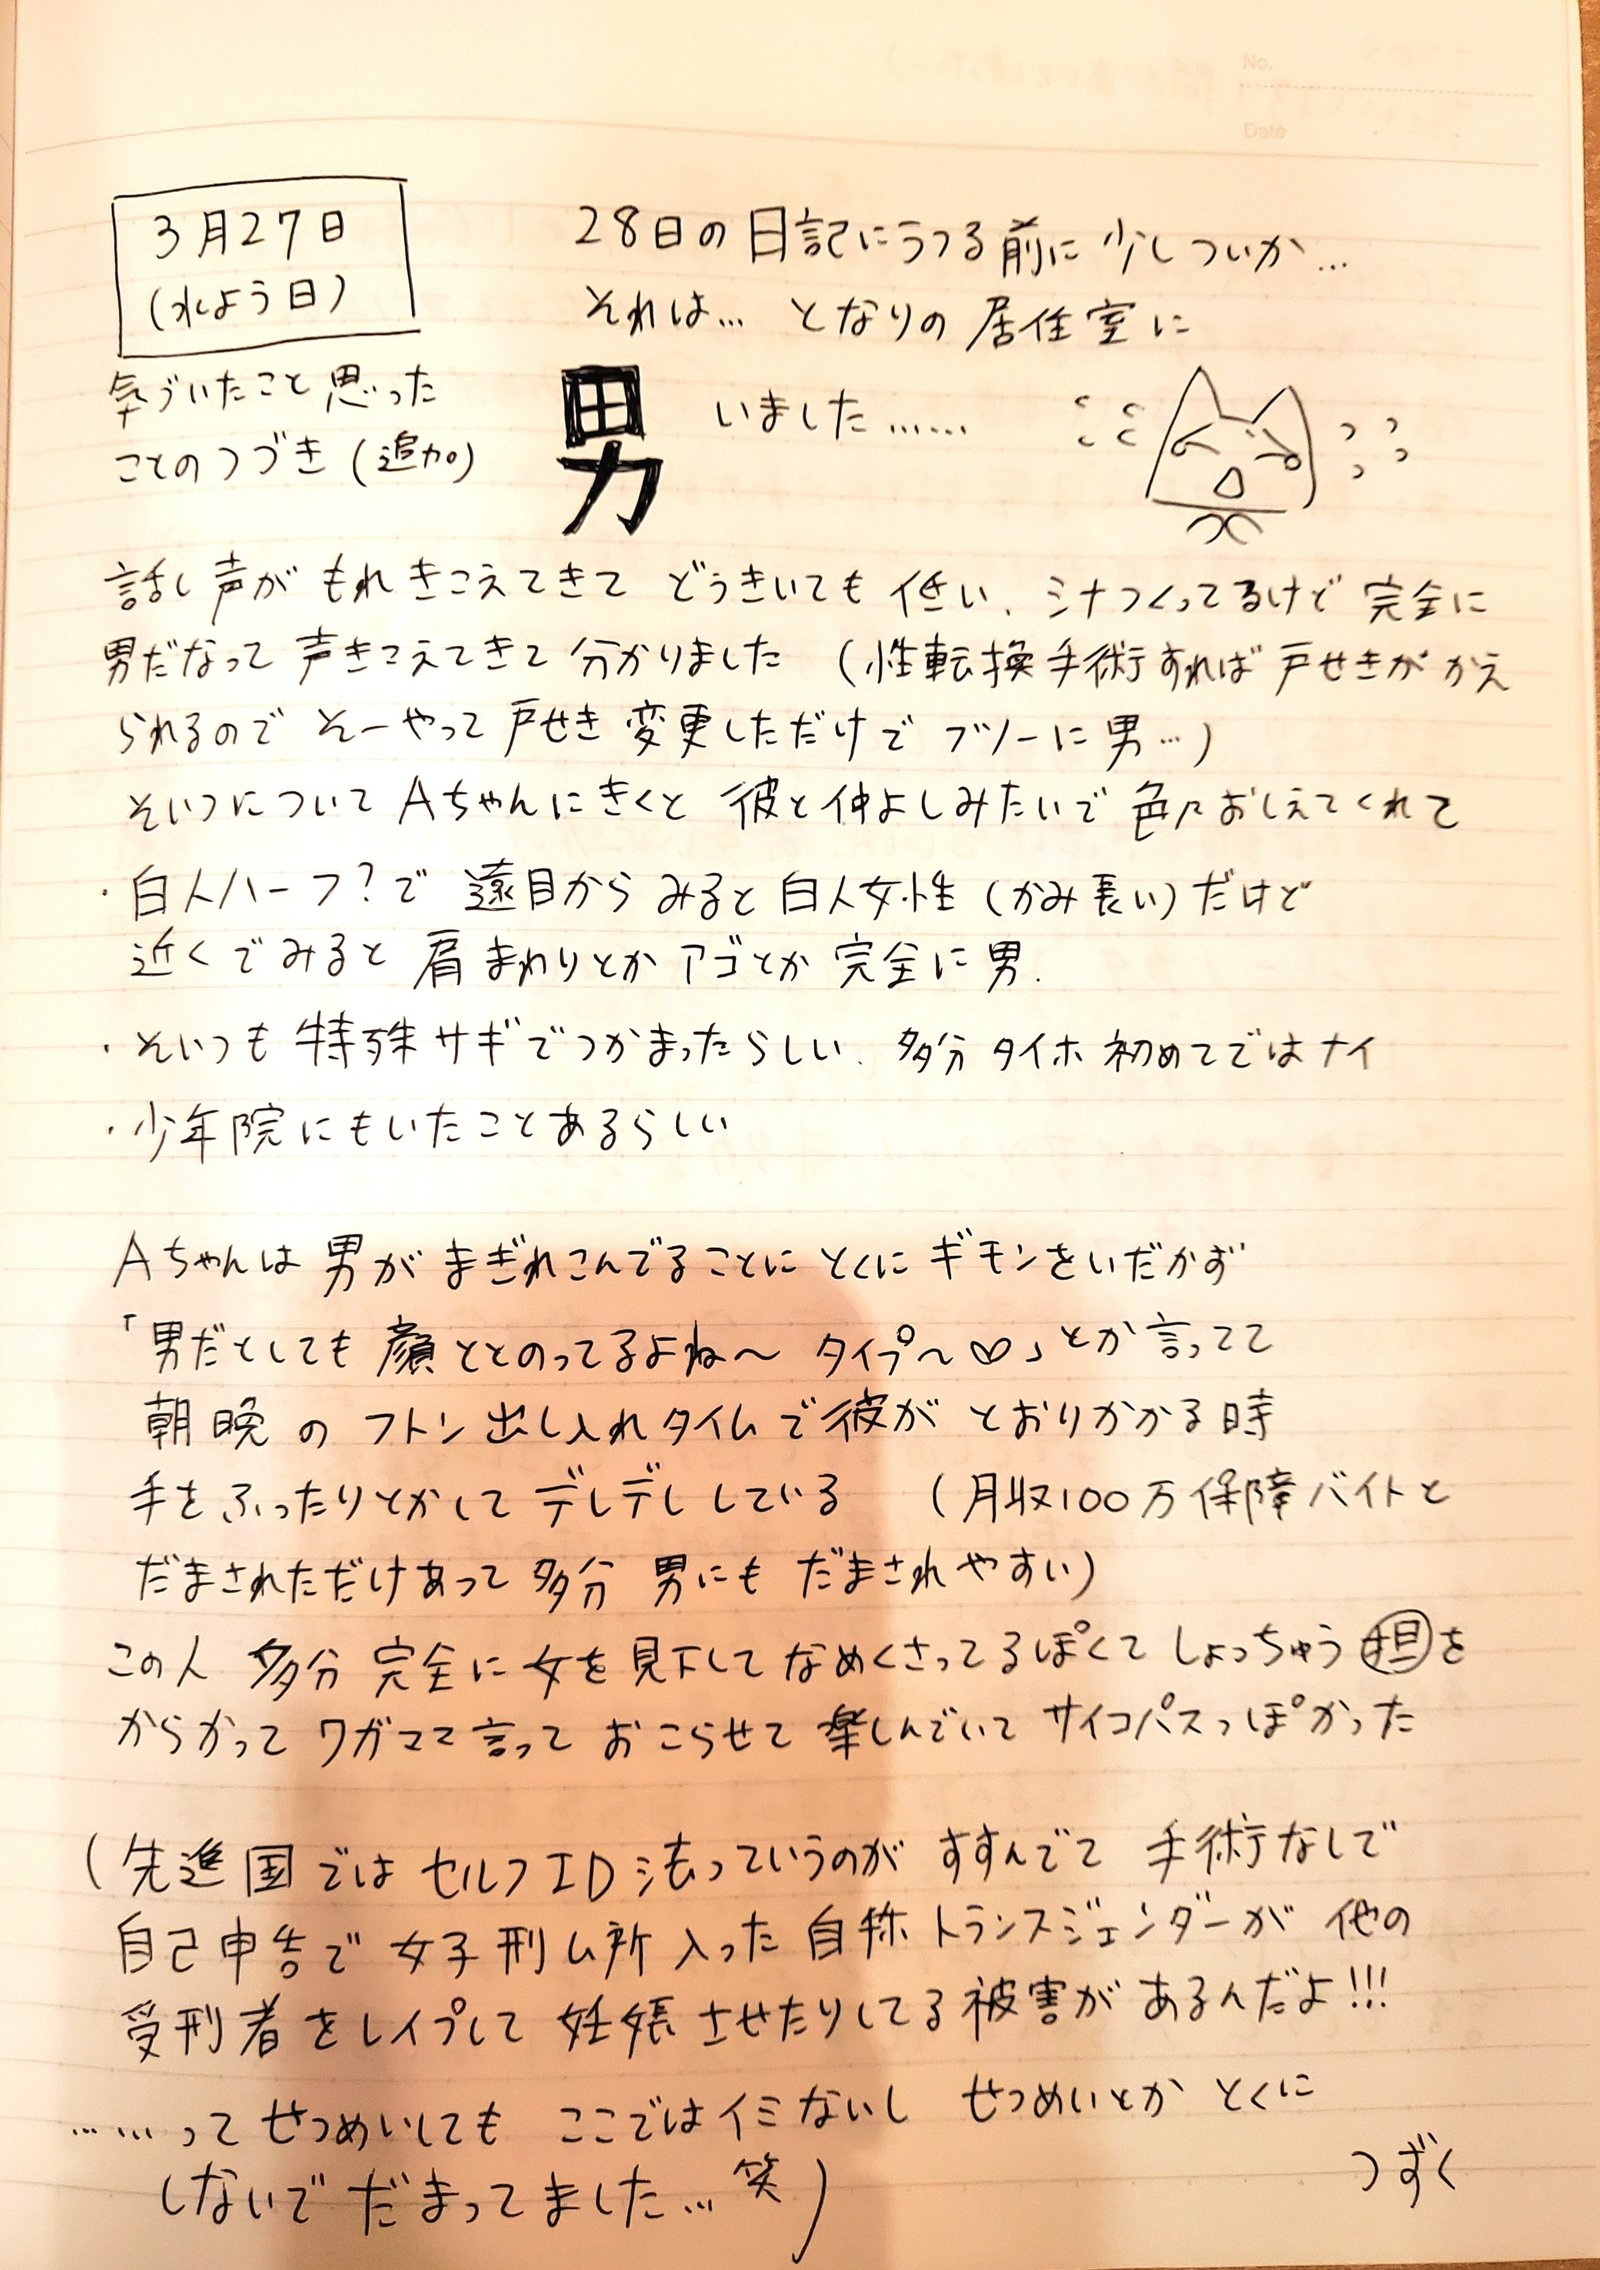 No.
Date
3月27日
(水よう日)
気づいたこと思った
ことのつづき(追加)
28日の日記にうつる前に少しついか…
それは… となりの居住室に
男 いました……
話し声がもれきこえてきてどうきいても低い、シナつくってるけど完全に
男だなって声きこえてきて分かりました (性転換手術すれば戸せきがかえ
られるのでそーやって戸せき変更しただけでフツーに男…)
そいつについてAちゃんにきくと彼と仲よしみたいで色々おしえてくれて
・白人ハーフ?で遠目からみると白人女性(かみ長い)だけど
近くでみると肩まわりとかアゴとか完全に男.
・そいつも特殊サギでつかまったらしい、多分タイホ初めてではナイ
・少年院にもいたことあるらしい
Aちゃんは男がまぎれこんでることにとくにギモンをいだかず
「男だとしても顔ととのってるよね〜 タイプ〜♡」とか言ってて
朝晩のフトン出し入れタイムで彼がとおりかかる時
手をふったりとかしてデレデレしている (月収100万保障バイトと
だまされただけあって多分男にもだまされやすい)
この人多分完全に女を見下してなめくさってるぽくてしょっちゅう担を
からかってワガママ言っておこらせて楽しんでいてサイコパスっぽかった
(先進国ではセルフID法っていうのがすすんでて手術なしで
自己申告で女子刑ム所入った自称トランスジェンダーが他の
受刑者をレイプして妊娠させたりしてる被害があるんだよ!!!
……ってせつめいしてもここではイミないしせつめいとかとくに
しないでだまってました…笑)
つずく